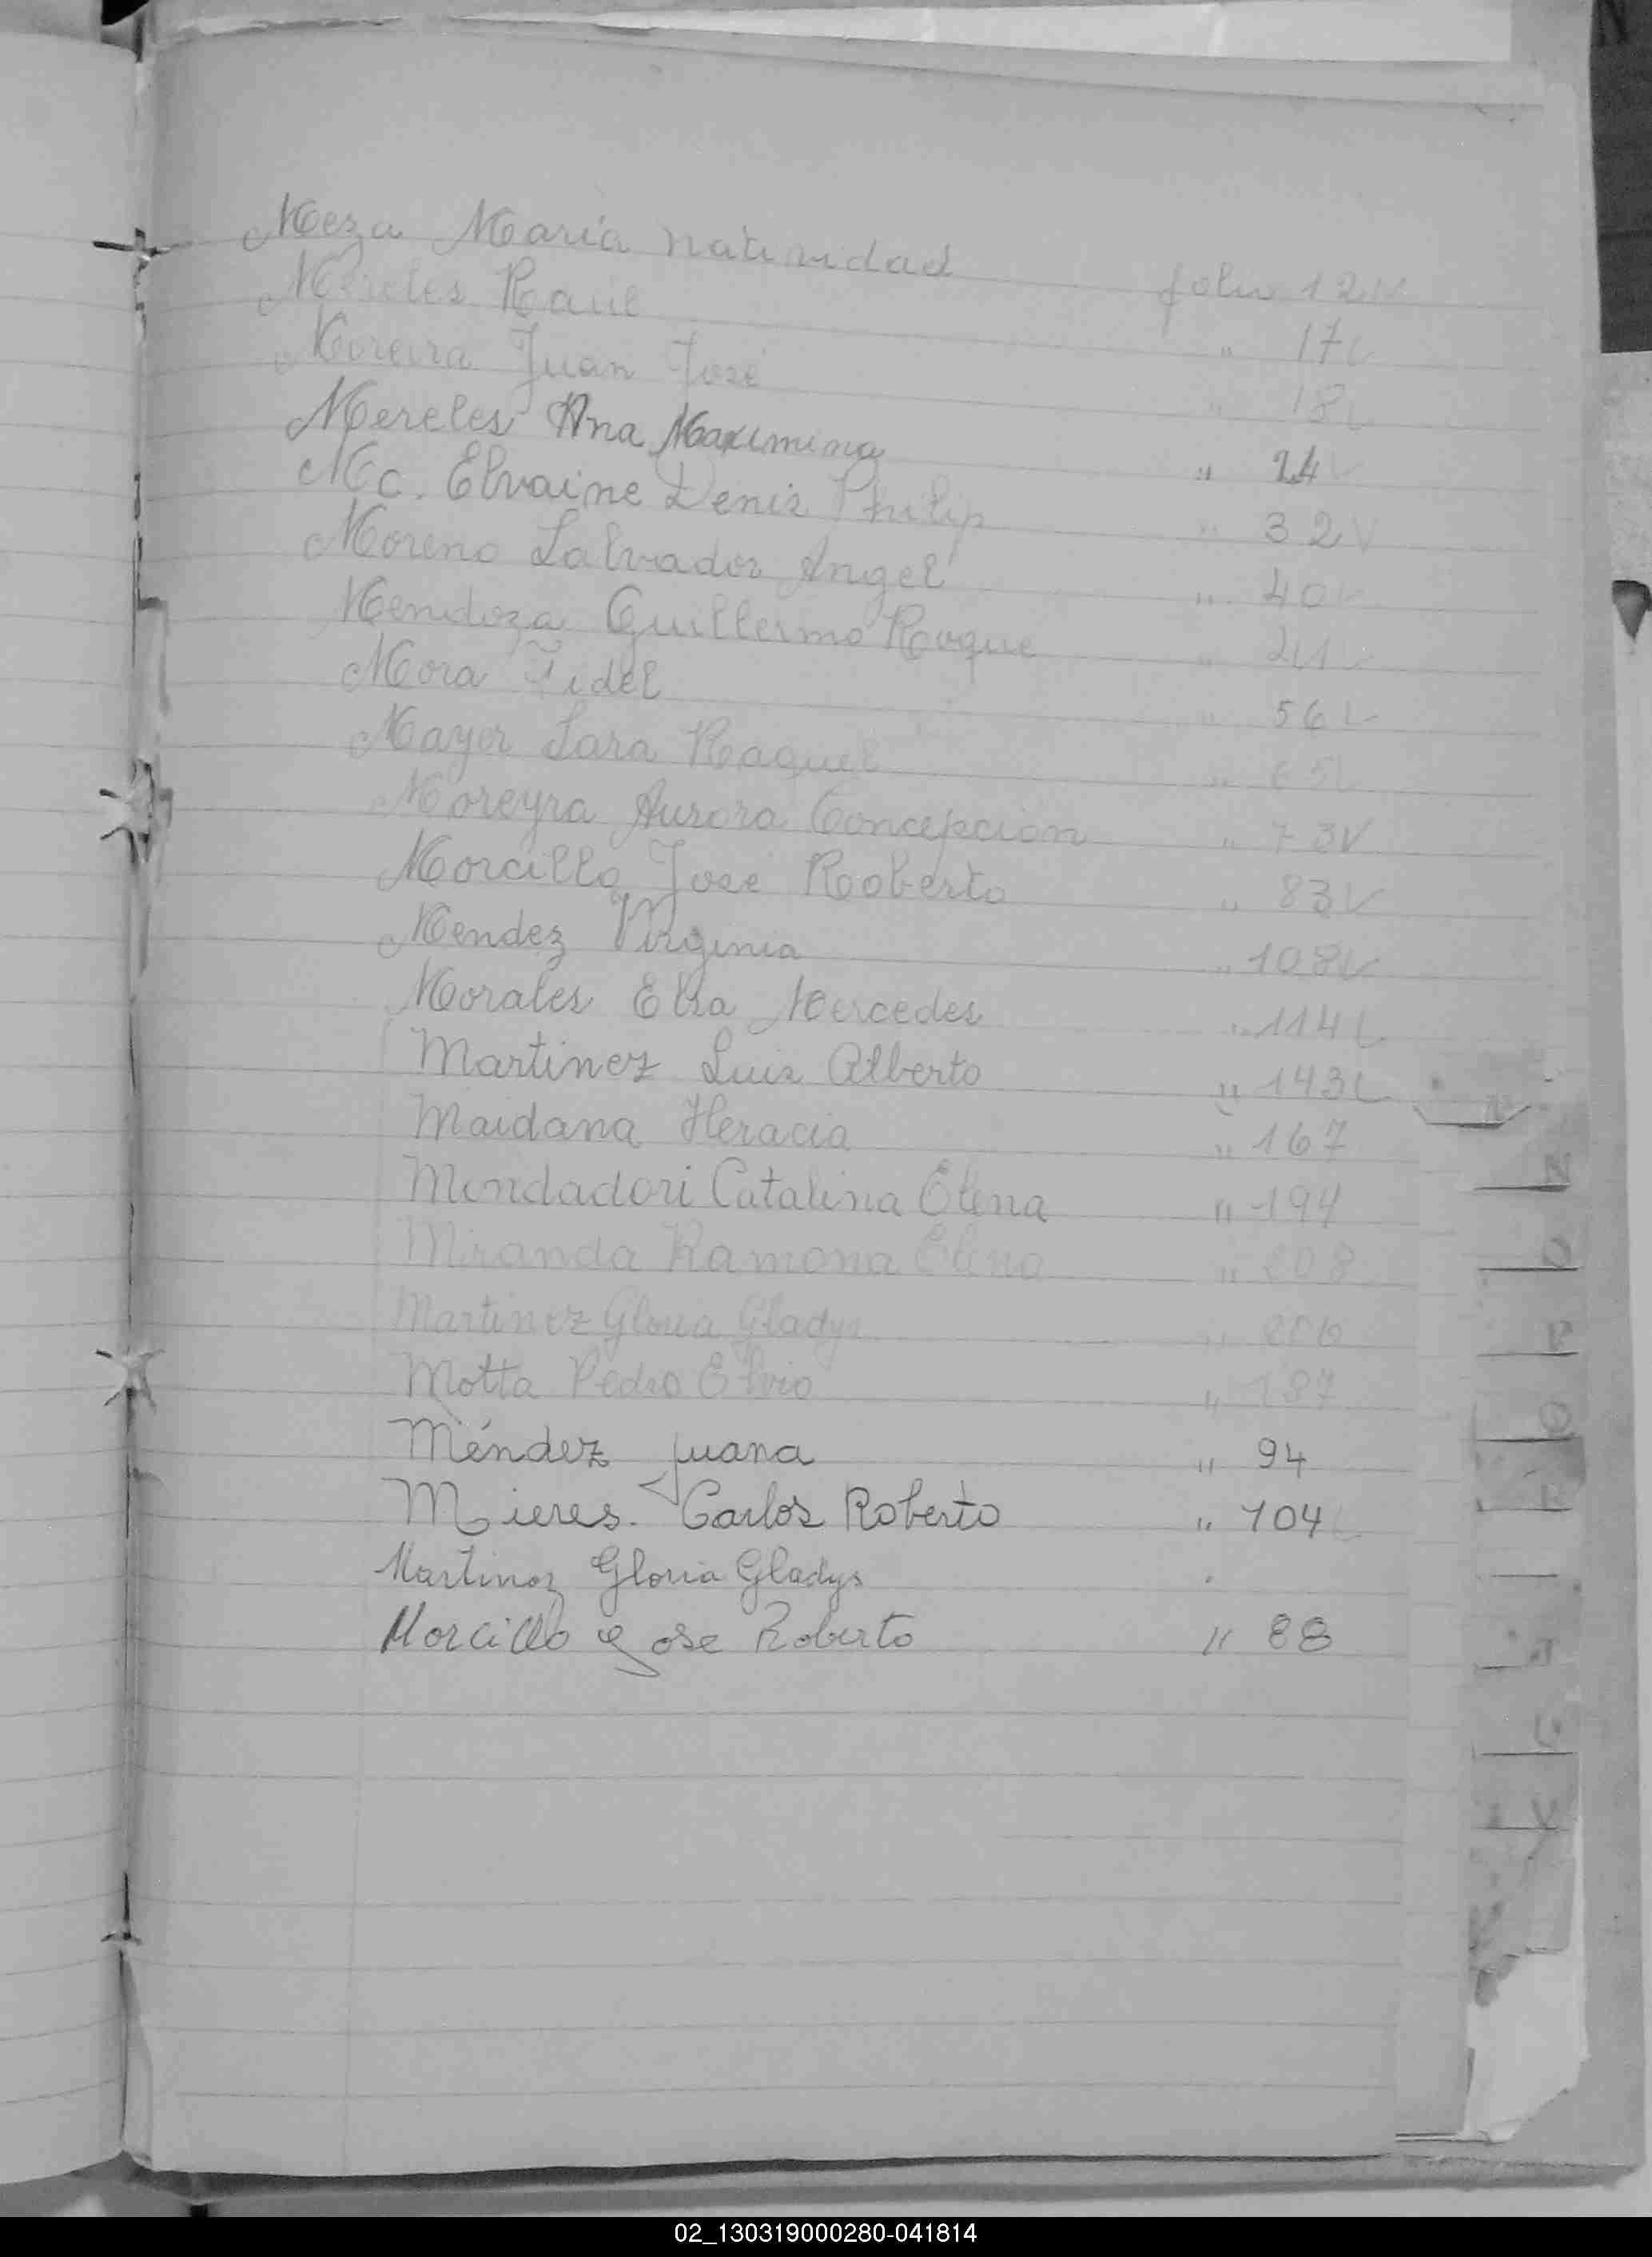 Meza María natividad folio 12 V
Mereles Raúl " 17 V
Moreira Juan José " 18 V
Mereles Ana Maximina " 24 V
Mc. Elvaine Denis Philip " 32 V
Moreno Salvador Angel " 40 V
Mendoza Guillermo Roque "
Mora Fidel " 56 V
Mayer Sara Raquel " 65 V
Moreyra Aurora Concepción " 73 V
Morcillo José Roberto " 83 V
Mendez Virginia " 108 V
Morales Elsa Mercedes " 114 V
Martinez Luis Alberto " 143 V
Maidana Heracia " 167
Mondadori Catalina Elena " 194
Miranda Ramona Elena " 208
Martinez Gloria Gladys " 206
Motta Pedro Elvio " 187
Méndez Juana " 94
Mieres. Carlos Roberto " 104 V
Martinez Gloria Gladys
Morcillo Jose Roberto " 88
N
O
P
Q
V
02_130319000280-041814